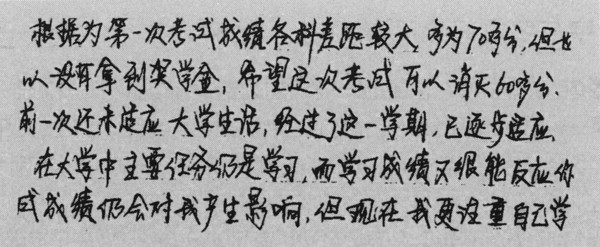 根据为第一次考试成绩各科差距较大,多为70多分,但也
以没有拿到奖学金,希望这次考试可以消灭60多分.
前一次还未适应大学生活,经过了这一学期,已逐步适应.
在大学中主要任务仍是学习,而学习成绩又很能反应你
试成绩仍会对我产生影响,但现在我更注重自己学